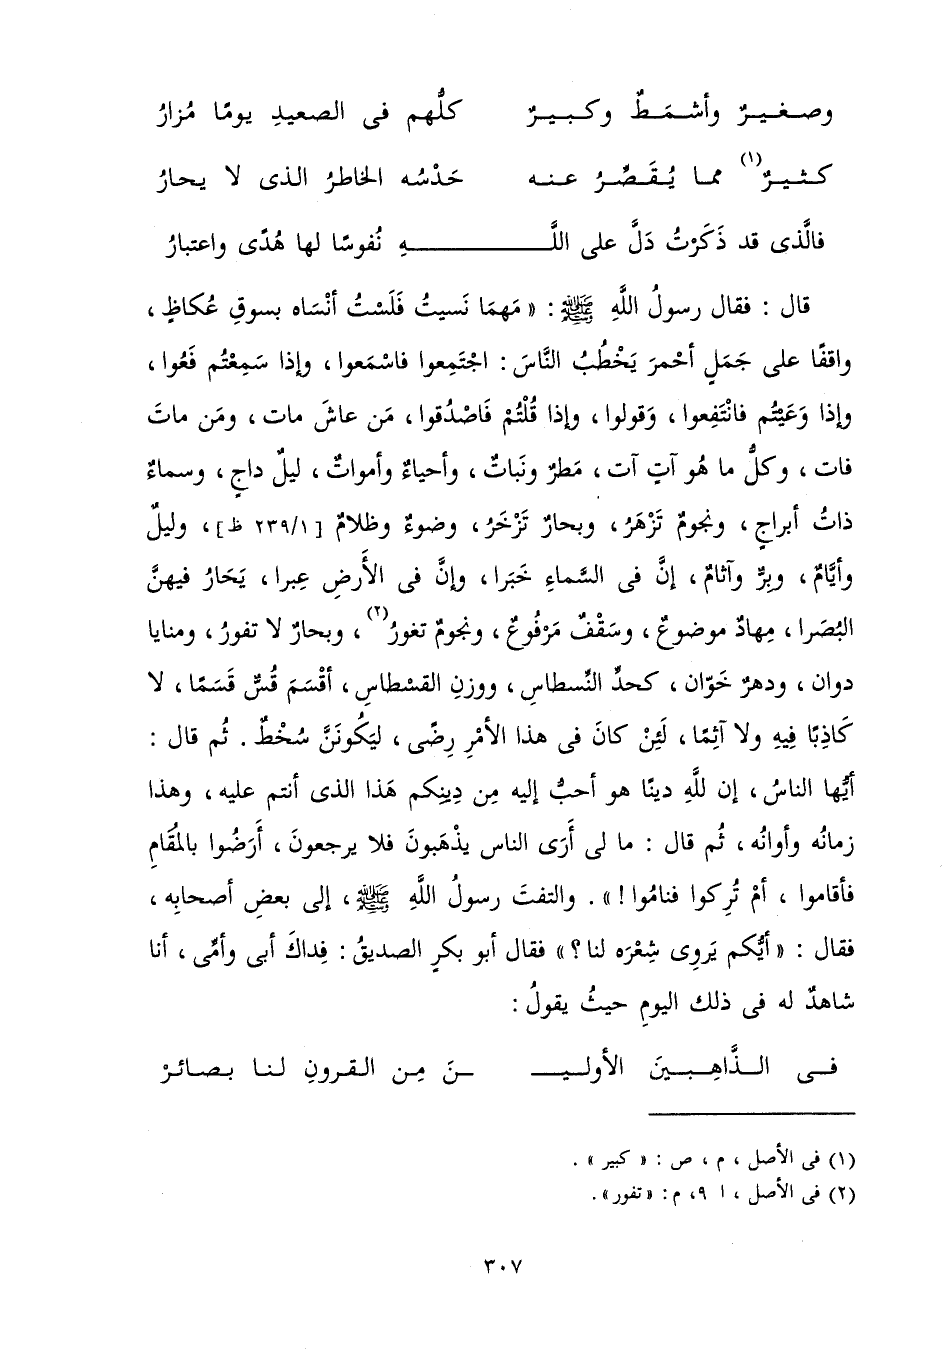 وصغيرٌ وأشمَطٌ وكبيرٌ كلُّهم فى الصعيدِ يومًا مُزارُ
كثيرٌ(١) مما يُقَصِّرُ عنه حَدْسُه الخاطرُ الذى لا يحارُ
فالَّذى قد ذَكَرْتُ دَلَّ على اللَّـــــهِ نُفوسًا لها هُدًى واعتبارُ
قال : فقال رسولُ اللَّهِ ﷺ : « مَهمَا نَسيتُ فَلَسْتُ أنْسَاه بسوقِ عُكاظٍ ،
واقفًا على جَمَلٍ أحْمرَ يَخْطُبُ النَّاسَ : اجْتَمِعوا فاسْمَعوا ، وإذا سَمِعْتُم فَعُوا ،
وإذا وَعَيْتُم فانْتَفِعوا ، وَقولوا ، وإذا قُلْتُمْ فَاصْدُقوا ، مَن عاشَ مات ، ومَن ماتَ
فات ، وكلُّ ما هُو آتٍ آت ، مَطرٌ ونَباتٌ ، وأحياءٌ وأمواتٌ ، ليلٌ داجٍ ، وسماءٌ
ذاتُ أبراجٍ ، ونجومٌ تَزْهَرُ ، وبحارٌ تَزْخَرُ ، وضوءٌ وظلامٌ [ ٢٣٩/١ ظ ] ، وليلٌ
وأيَّامٌ ، وبِرٌّ وآثامٌ ، إنَّ فى السَّماءِ خَبَرا ، وإنَّ فى الأَرضِ عِبرا ، يَحَارُ فيهنَّ
البُصَرا ، مِهادٌ موضوعٌ ، وسَقْفٌ مَرْفُوعٌ ، ونجومٌ تغورُ(٢) ، وبحارٌ لا تفورُ ، ومنايا
دوان ، ودهرٌ خَوّان ، كحدِّ النِّسطاسِ ، ووزنِ القسْطاسِ ، أقْسَمَ قُسٌّ قَسَمًا ، لا
كَاذِبًا فِيهِ ولا آثِمًا ، لَئِنْ كانَ فى هذا الأمْرِ رِضًى ، ليَكُونَنَّ سُخْطٌ . ثُم قال :
أيُّها الناسُ ، إن للَّهِ دينًا هو أحبُّ إليه مِن دِينِكم هَذا الذى أنتم عليه ، وهذا
زمانُه وأوانُه ، ثُم قال : ما لى أَرَى الناس يذْهَبونَ فلا يرجعونَ ، أَرَضُوا بالمُقَامِ
فأقاموا ، أمْ تُرِكوا فنامُوا ! » . والتفتَ رسولُ اللَّهِ ﷺ ، إلى بعضِ أصحابِه ،
فقال : « أيُّكم يَروِى شِعْرَه لنا ؟ » فقال أبو بكرٍ الصديقُ : فِداكَ أبى وأمِّى ، أنا
شاهدٌ له فى ذلك اليومِ حيثُ يقولُ :
فى الذَّاهِبينَ الأوليـــ ـنَ مِن القرونِ لنا بصائرْ
(١) فى الأصل ، م ، ص : « كبير » .
(٢) فى الأصل ، ا ٩ ، م : « تفور » .
٣٠٧